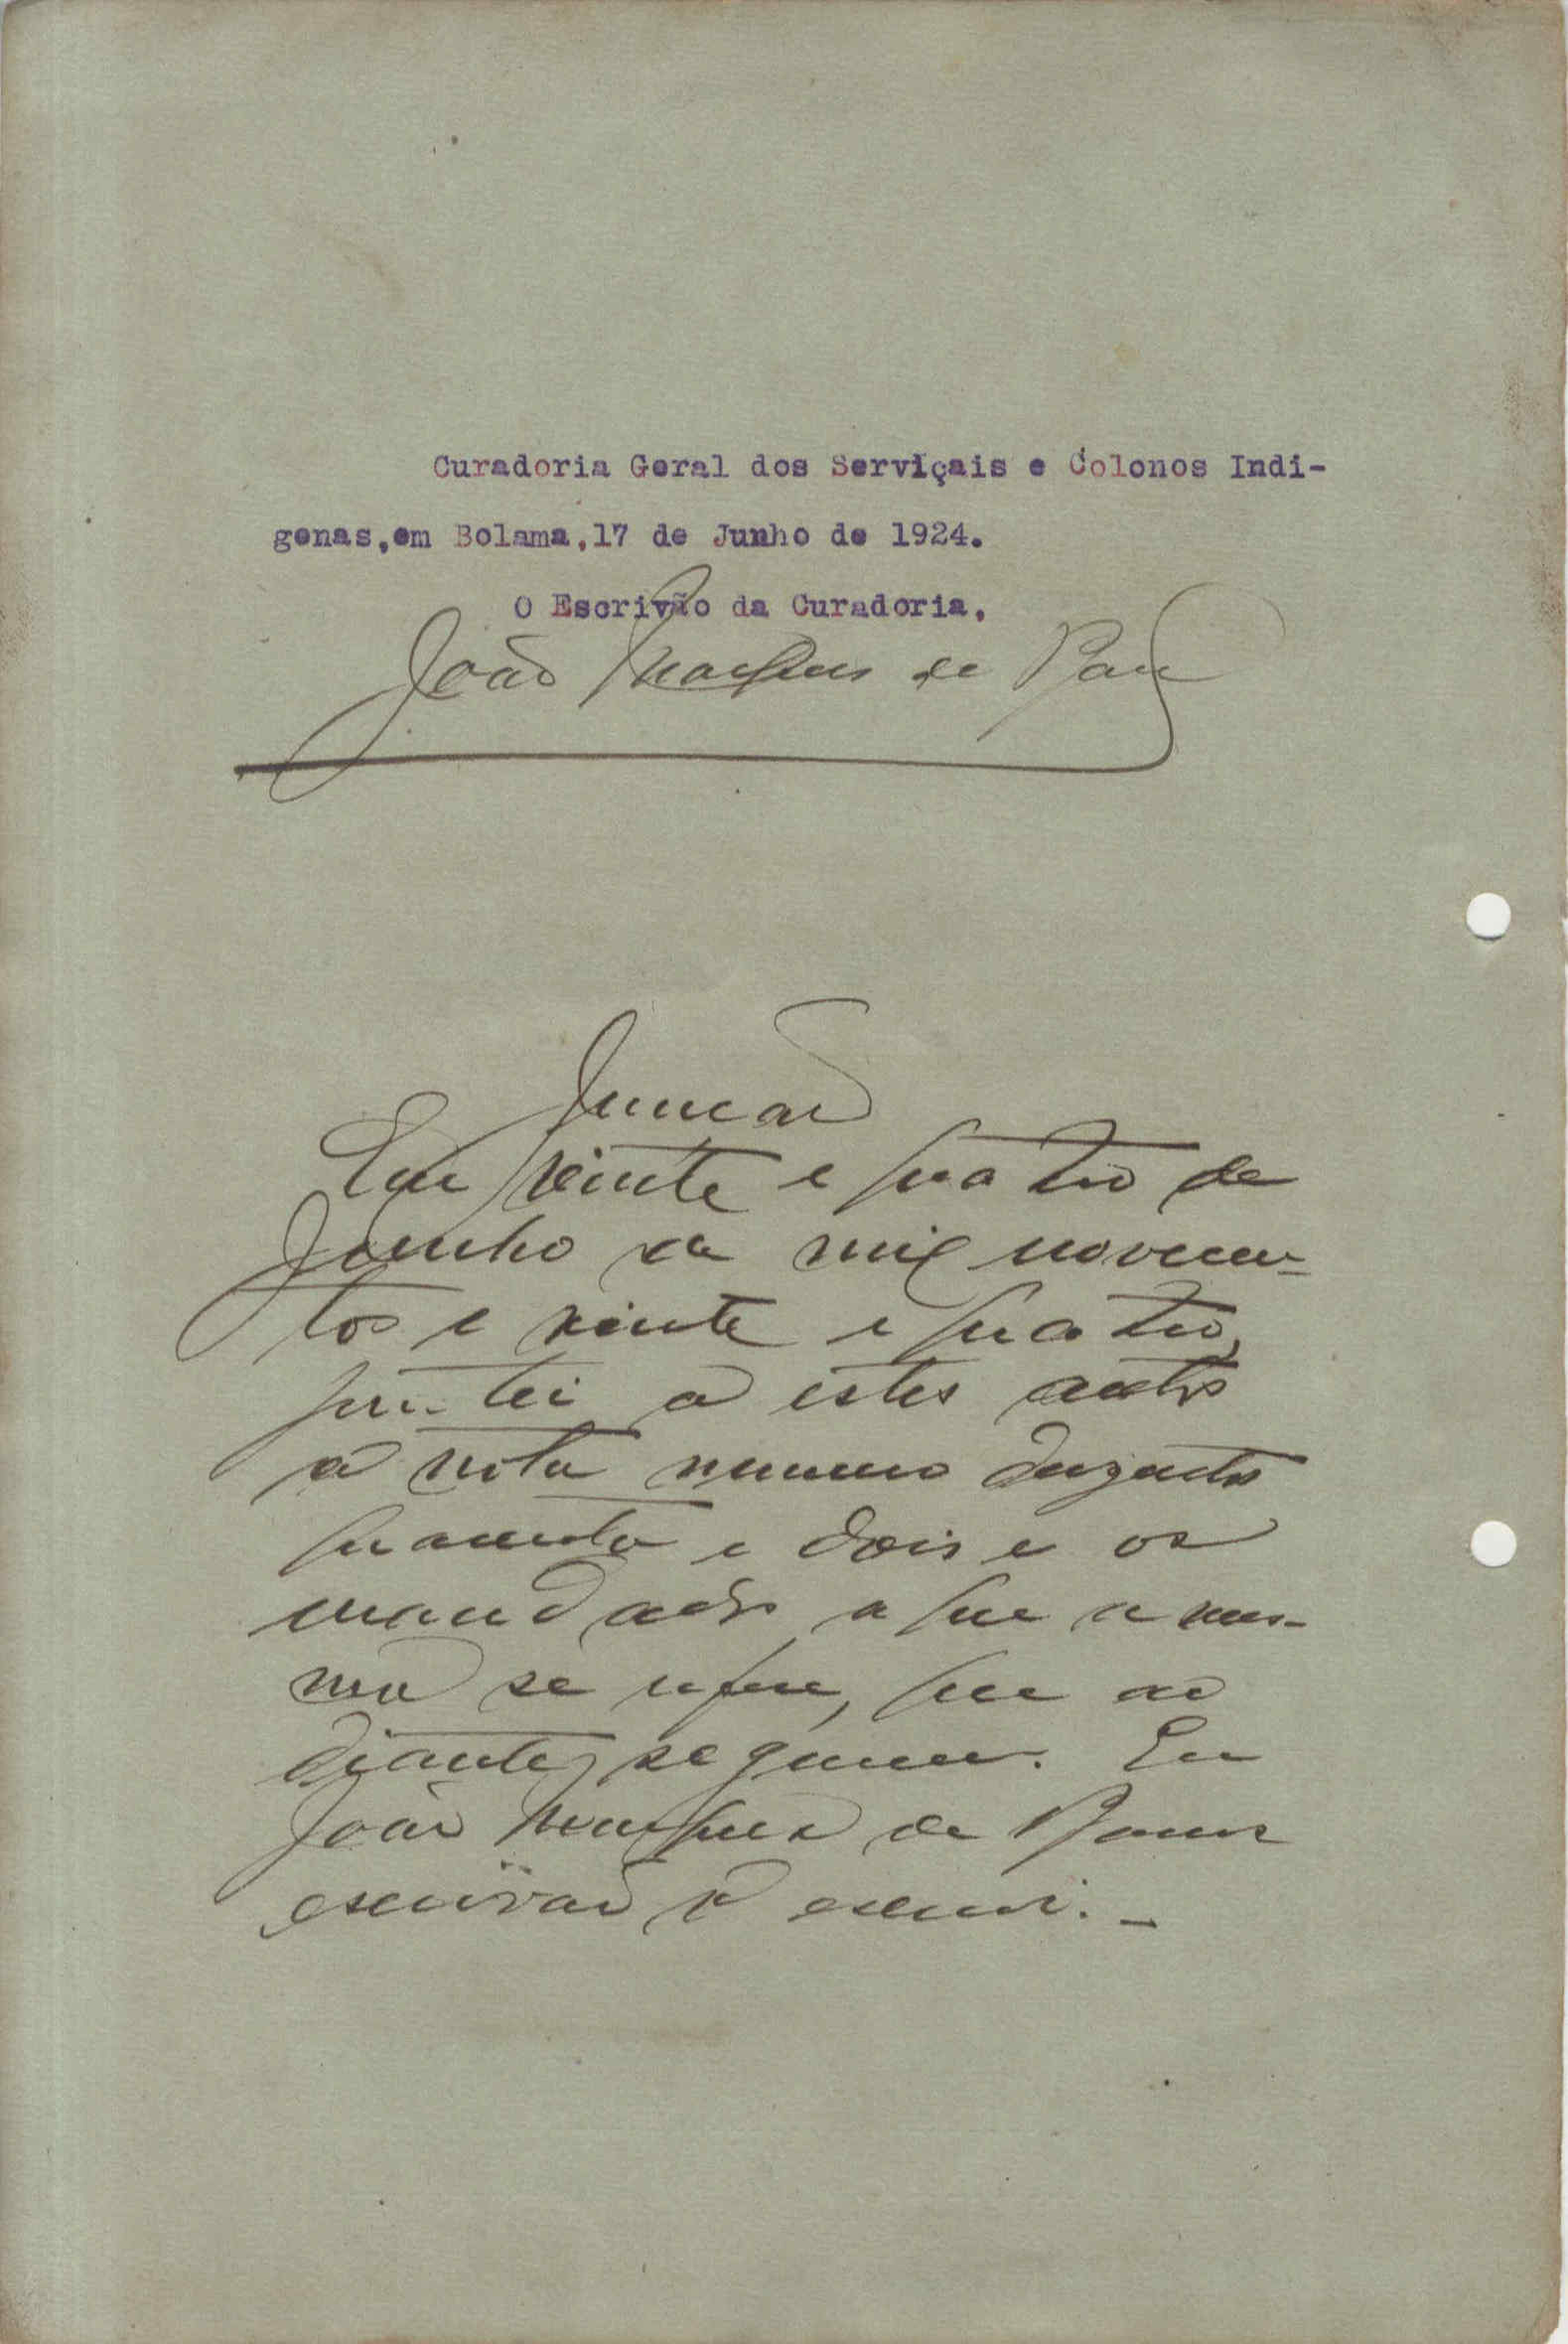 Curadoria Geral dos Serviçais e Colonos Indi-
genas,em Bolama,17 de Junho de 1924.
O Escrivão da Curadoria,
João Marques de
Junção
Em vinte e quatro de
Junho de mil novecen-
tos e vinte e quatro,
juntei a estes autos
a nota numero duzentos
quarenta e dois e os
mandados a que a mes-
ma se refere, que ao
diante seguem. Eu
João Marques de
escrivão o escrevi.-